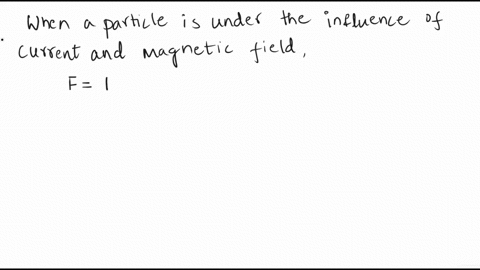 When a particle is under the influence of
current and magnetic field,
F = I